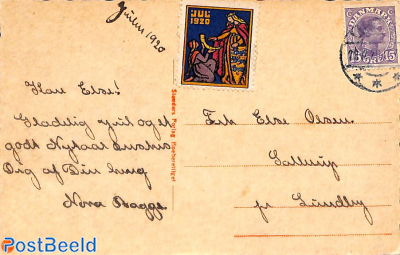 Julen 1920
JUL
1920
DANMARK
15 15
GRE
Kære Else!
Glædelig Jul og et
godt Nytaar ønskes
Dig af Din
Nora Bagge
Stenders Forlag
Frk Else Olsen.
pr Lundby
PostBeeld